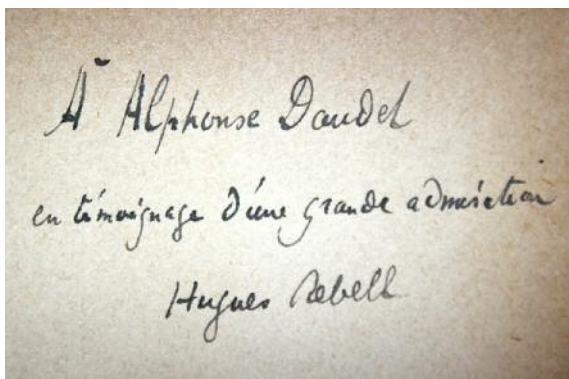 À Alphonse Daudet
en témoignage d'une grande admiration
Hugues Rebell